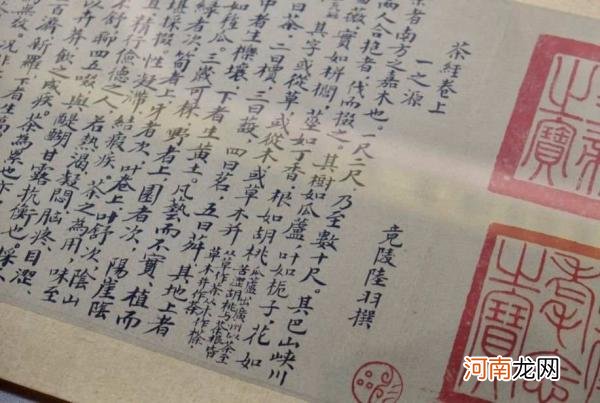 茶經卷上
一之源
竟陵陸羽撰
茶者南方之嘉木也。一尺二尺乃至數十尺。其巴山峽川
兩人合抱者,伐而掇之。其樹如瓜蘆,葉如梔子,花如
薔薇,實如栟櫚,莖如丁香,根如胡桃。瓜蘆出廣州似茶至
其字或從草,或從木,或草木并
曰茶,二曰檟,三曰蔎,四曰茗,五曰荈。其地上者
中者生櫟壤,下者生黃土。凡藝而不實,植而
如種瓜。三歲可採。野者上,園者次,陽崖陰
綠者次,筍者上,牙者次,葉卷上,葉舒次,陰山
堪採掇,性凝滯,結瘕疾。茶之為用,味至
宜精行儉德之人,若熱渴凝悶,腦疼目澀,
不舒,聊四五啜,與醍醐甘露抗衡也。採
以卉莽,飲之成疾。茶為累也亦
百濟新羅,下者生高
之寶
之寶
河南龙网